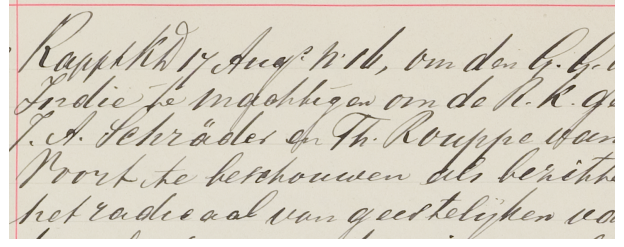 Rapp KD 17 Augs. n: 16, om den G. G. v
Indie te magtigen om de R. K. ge
J. A. Schräder en Th. Rouppe van
Voort te beschouwen als bezitte
het radicaal van geestelijken vo